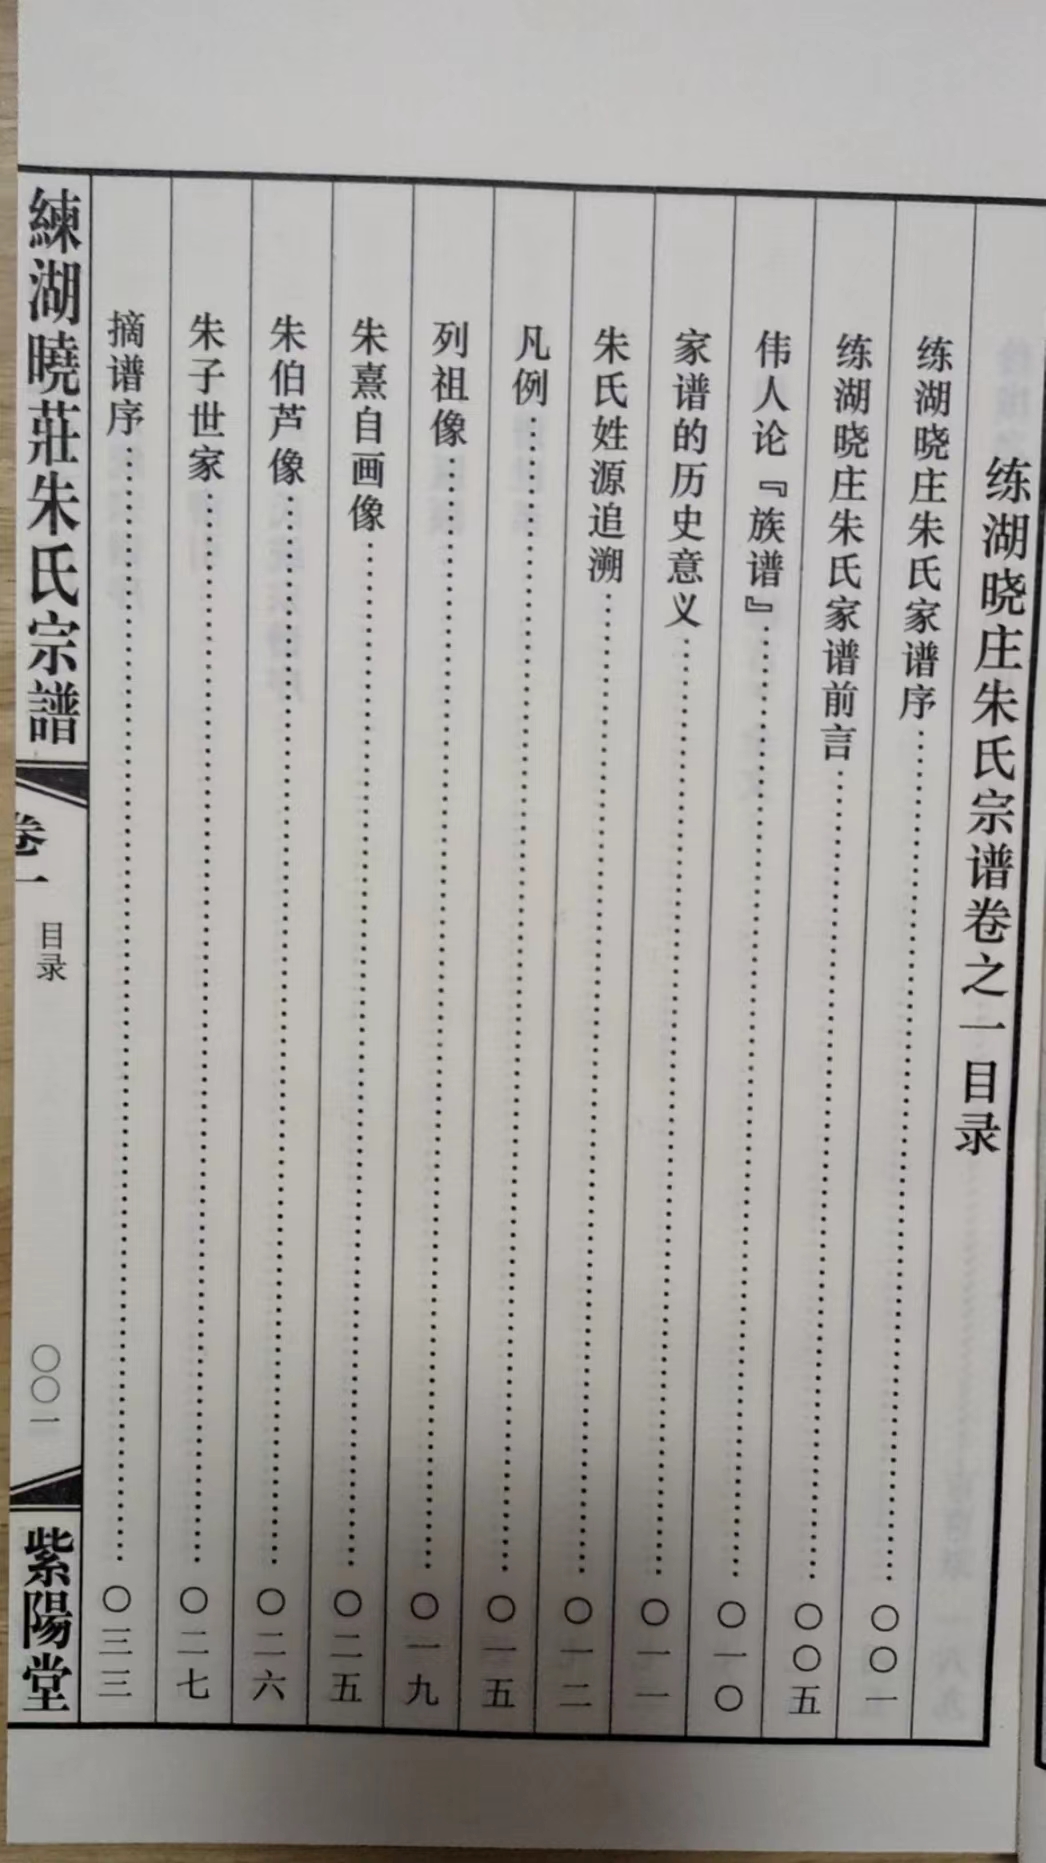 练湖晓庄朱氏宗谱卷之一目录
练湖晓庄朱氏家谱序……〇〇一
练湖晓庄朱氏家谱前言……〇〇五
伟人论『族谱』……〇一〇
家谱的历史意义……〇一一
朱氏姓源追溯……〇一二
凡例……〇一五
列祖像……〇一九
朱熹自画像……〇二五
朱伯芦像……〇二六
朱子世家……〇二七
摘谱序……〇三三
練湖曉莊朱氏宗譜
卷一
目录
〇〇一
紫陽堂